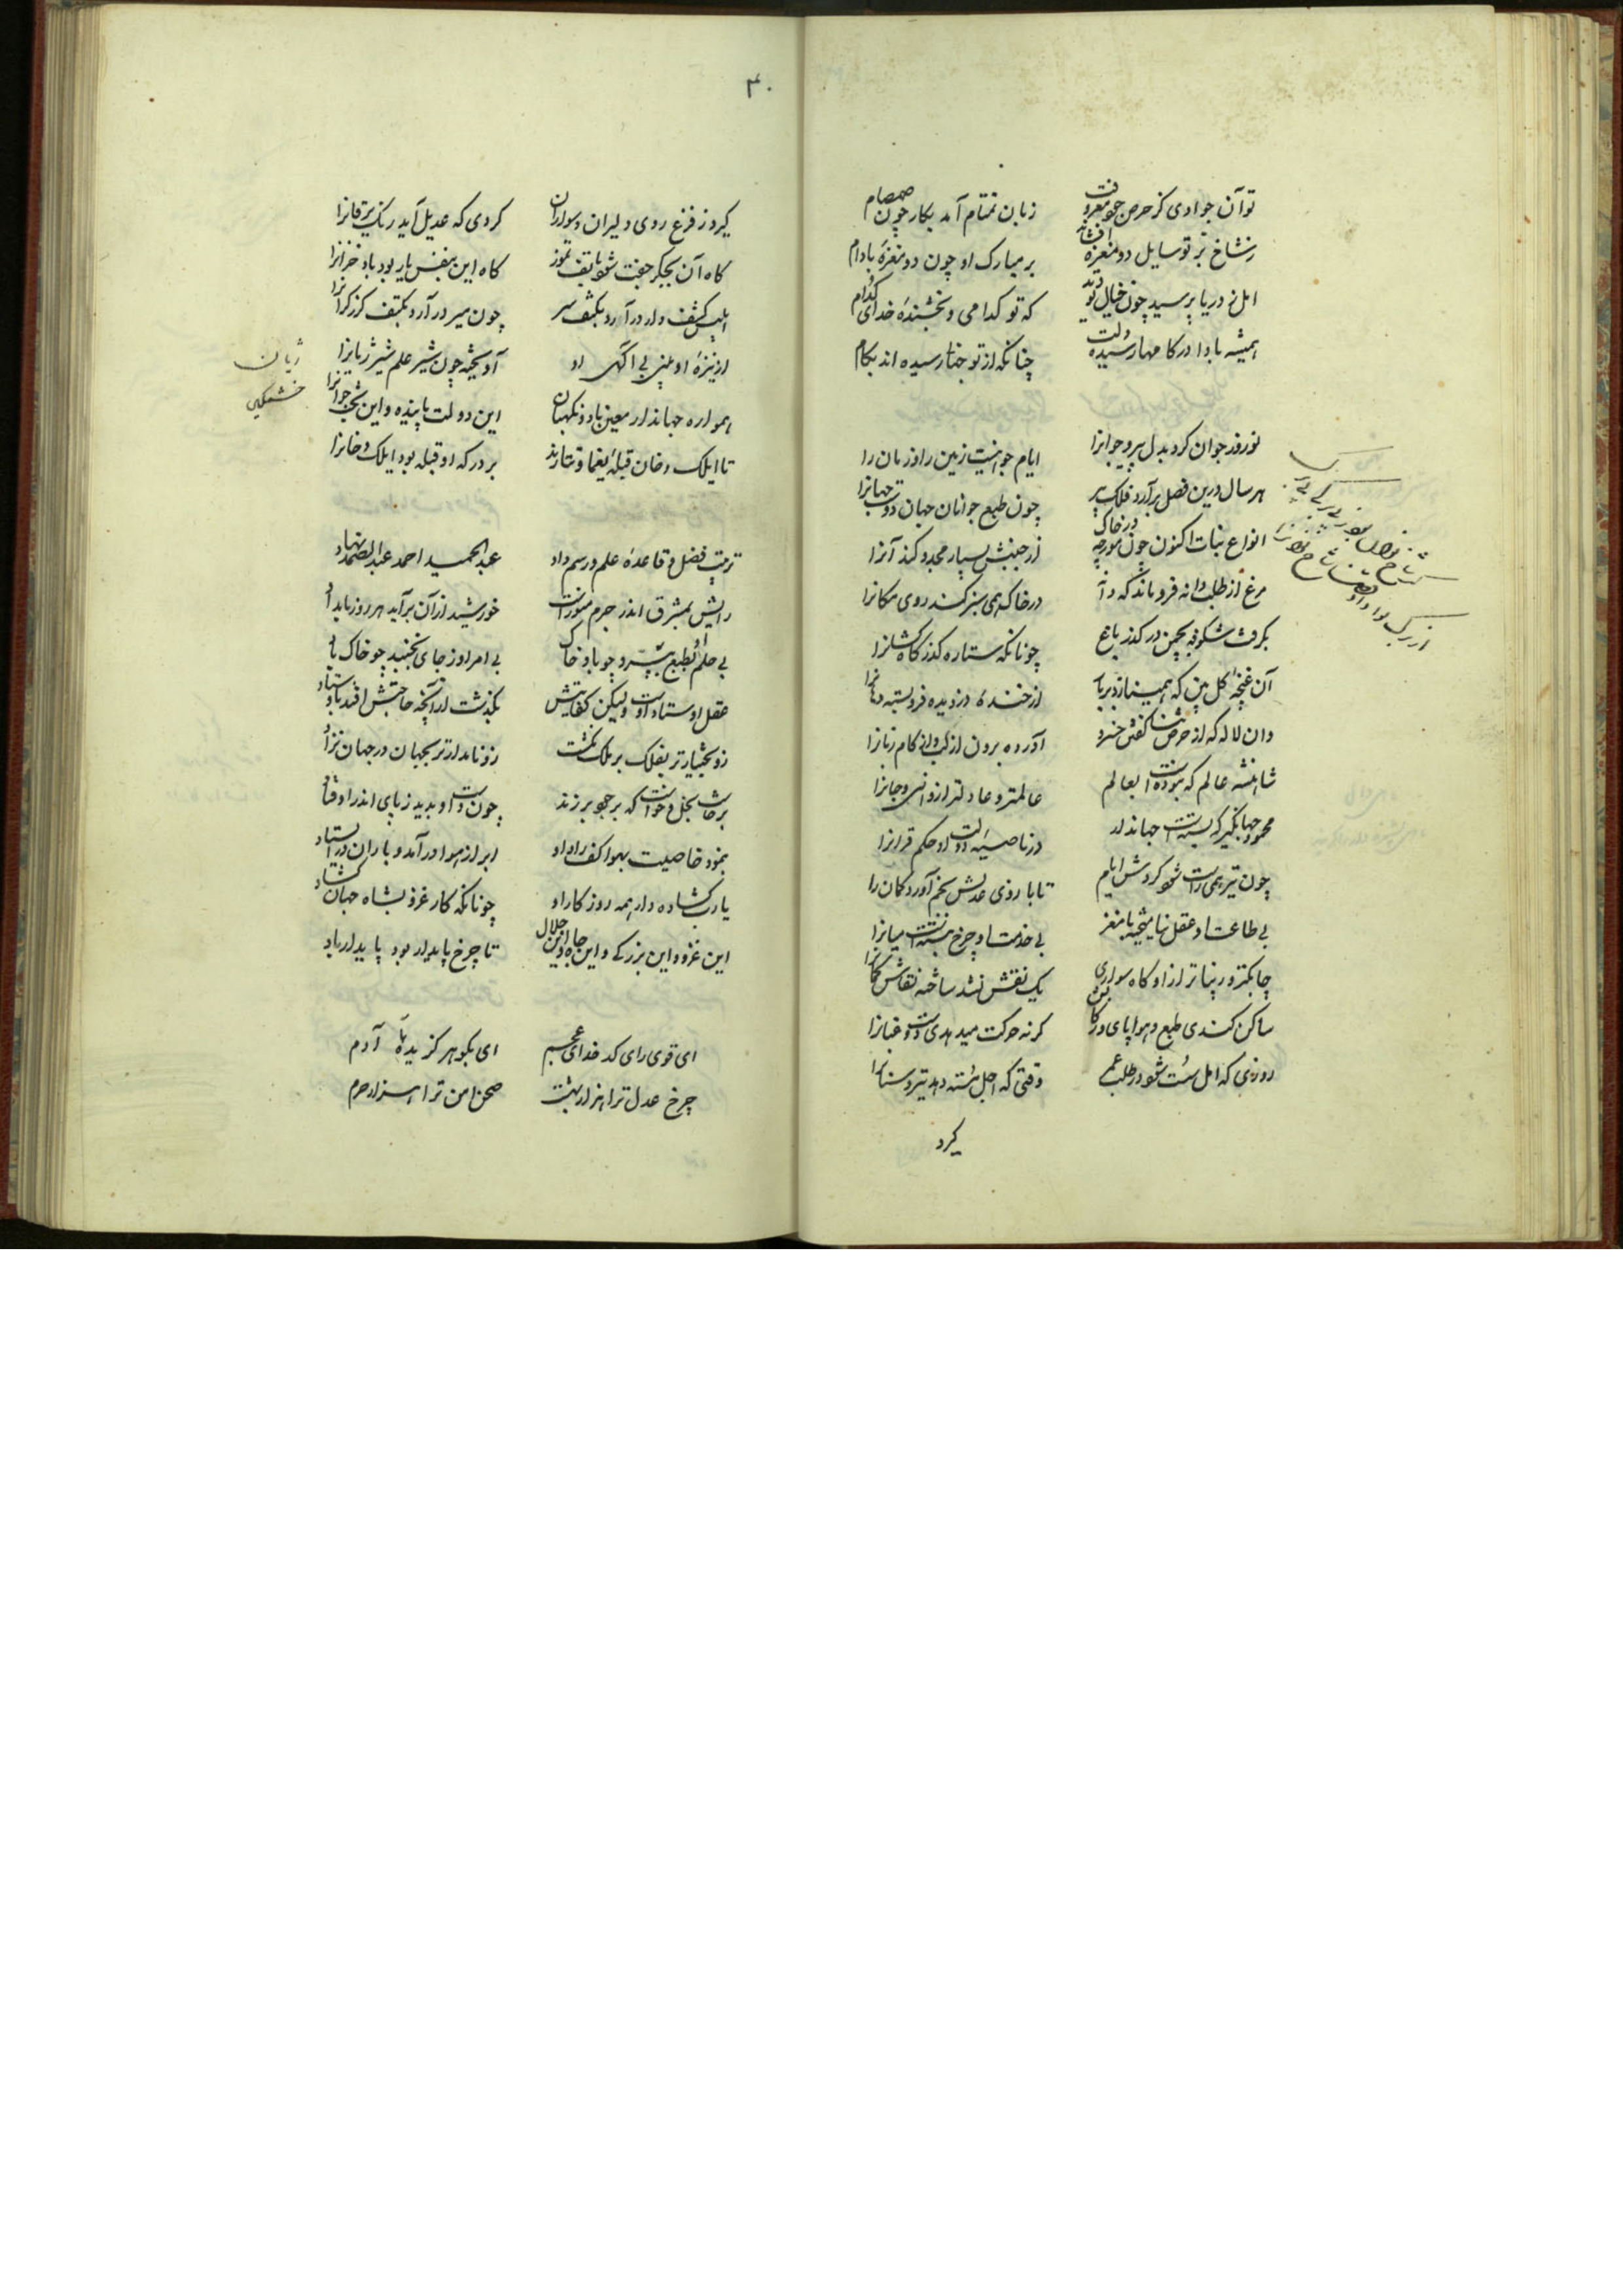 تو آن جوادی کز حرص جود معروفت زبان تمتام آمد بکار چون صمصام
ز شاخ بر تو سایل دو مغزه افشاند بر مبارک او چون دو مغزهٔ بادام
امل ز دریا پرسید چون خیال تو دید که تو کدامی و بخشندهٔ خدای کدام
همیشه بادا در کامها رسیده دلت چنانکه از تو جهانی رسیده اند بکام
نوروز جوان کرد بدل پیر و جوانرا ایام جوانیست زمین را و زمان را
هر سال درین فصل برآرد فلک پیر چون طبع جوانان جهان دوست جهانرا
انواع نبات اکنون چون مورچه در خاک از جنبش بسیار مجدد کند آنرا
مرغ از طلب دانه فرو ماند که دانه در خاک همی سبز کند روی مکانرا
بگرفت شکوفه بچمن در گذر باغ چونانکه ستاره گذر کاه کشانرا
آن غنچهٔ گل بین که همی نازد بر باد از خندهٔ دزدیده فرو بسته دهانرا
وان لاله که از حرص ثنا گفتن خسرو آورده برون از لب و از کام زبانرا
شاهنشه عالم که نبوده است بعالم عالمتر و عادلتر ازو انس و جانرا
محمود جهانگیر که بسته است جهاندار در ناصیهٔ دولت او حکم قرانرا
چون تیر همی راست شود گردش ایام تا با روش عدلش بخم آورد کمان را
بی طاعت او عقل نیامیخته با مغز بی خدمت او چرخ نبسته است میانرا
چابکتر و زیباتر ازو گاه سواری یک نقش نشد ساخته نقاش گمانرا
ساکن کندی طبع هوا پای در کابش گر نه حرکت میدهدی دست و عنانرا
روزی که امل سست شود در طلب عمر وقتی که اجل شسته دهد تیر و سنانرا
گیرد
۳۰
گیرد ز فزع روی دلیران و سواران گردی که عدیل آید رنگ یرقانرا
گاه آن بجگر جفت شود با تف تموز گاه این بنفس یار بود باد خزانرا
ابلیس کشف وار درآرد بکتف سر چون سر درآرد بکتف گرز گرانرا
از نیزهٔ او بینی بی آگهی او آویخته چون شیر علم شیر ژیانرا
ژیان
خشمگین
همواره جهاندار معین باد و نگهبان این دولت پاینده و این بخت جوانرا
تا ایلک و خان قبلهٔ یغما و تتارند بر درگه او قبله بود ایلک و خانرا
ترتیب فضل و قاعدهٔ علم و رسم داد عبدالحمید احمد عبدالصمد نهاد
رایش بمشرق اندر جرم منورست خورشید از آن برآید هر روز بامداد
بی حلم او بطبع نپرد چو باد خاک بی امر او ز جای نجنبد چو خاک باد
عقل اوستاد اوست ولیکن کفایتش بگذشت از آنچه حاجتش افتد باوستاد
زو بختیارتر بفلک بر ملک نگشت زو نامدارتر بجهان در جهان نزاد
برخاست بخل و خواست که بر جود برزند چون دست او بدید ز پای اندر اوفتاد
بنمود خاصیت بهوا کف راد او ابر از هوا درآمد و باران در ایستاد
یا رب گشاده دار همه روز کار او چونانکه کار غزو بشاه جهان گشاد
این غزو و این بزرگی و این جاه و این جلال تا چرخ پایدار بود پایدار باد
ای قوی رای کدخدای عجم ای بگوهر گزیدهٔ آدم
چرخ عدل ترا هزار بهشت صحن امن ترا هزار حرم